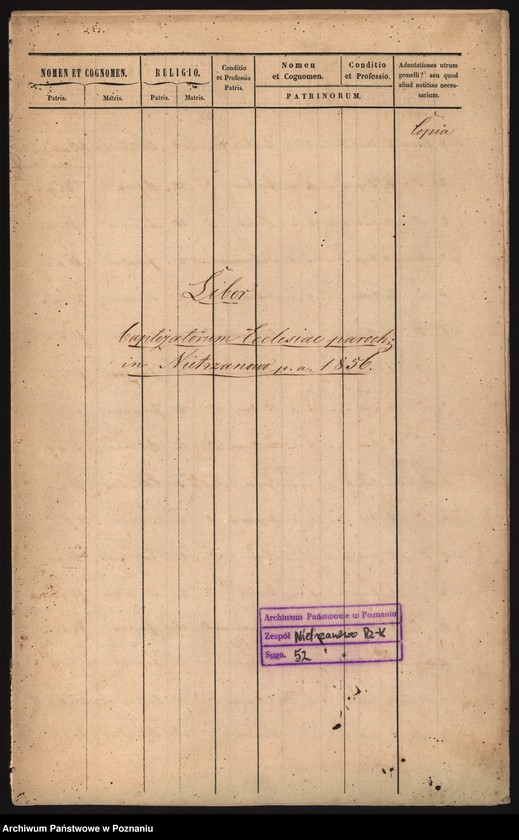 NOMEN ET COGNOMEN.
Patris.
Matris.
RELIGIO.
Patris.
Matris.
Conditio
et Professio
Patris.
Nomen
et Cognomen.
Conditio
et Professio.
PATRINORUM.
Adnotationes utrum
gemelli? seu quod
aliud notitiae neces-
sarium.
Copia
Liber
baptizatorum Ecclesiae paroch:
in Nietrzanowo p. a. 1856.
Archiwum Państwowe w Poznaniu
Zespół Nietrzanowo Rz-K
Sygn. 52
Archiwum Państwowe w Poznaniu